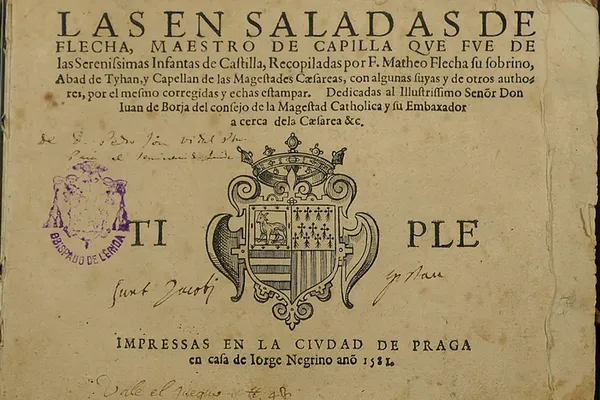 LAS EN SALADAS DE
FLECHA, MAESTRO DE CAPILLA QVE FVE DE
las Sereniſsimas Infantas de Caſtilla, Recopiladas por F. Matheo Flecha ſu ſobrino,
Abad de Tyhan, y Capellan de las Mageſtades Cæſareas, con algunas ſuyas y de otros autho-
res, por el meſmo corregidas y echas eſtampar. Dedicadas al Illuſtriſsimo Senõr Don
Iuan de Borja del conſejo de la Mageſtad Catholica y ſu Embaxador
a cerca dela Cæſarea &c.
de D. Pedro
OBISPADO DE LÉRIDA
TI PLE
IMPRESSAS EN LA CIVDAD DE PRAGA
en caſa de Iorge Negrino anõ 1581.
Vale el